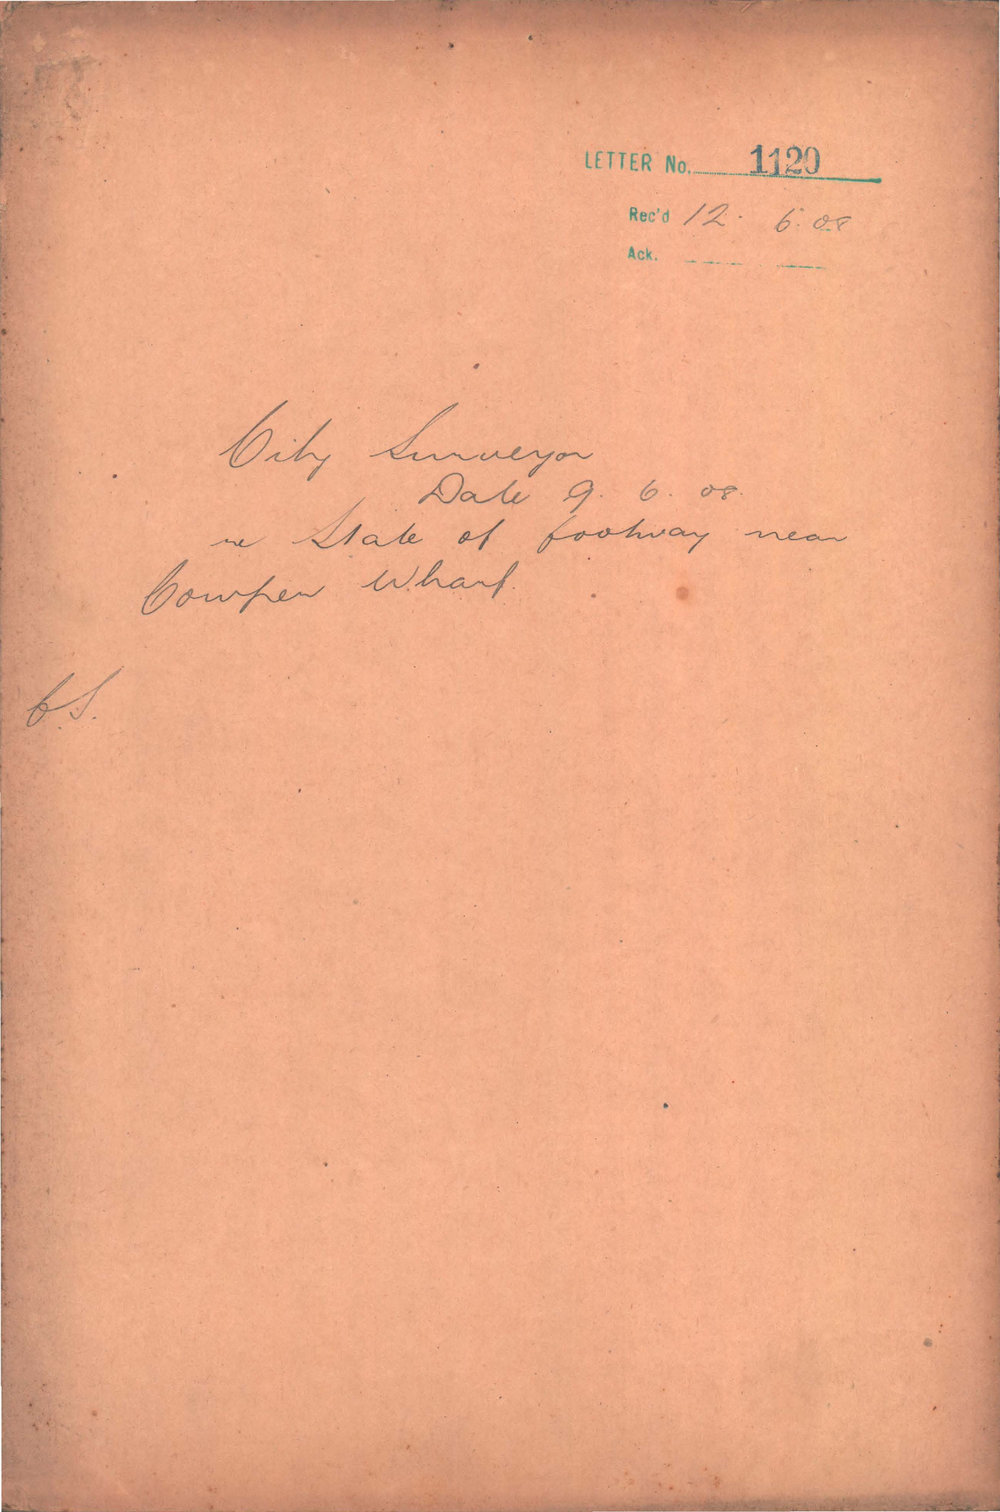 LETTER No. 1120
Rec'd 12. 6. 08
Ack.
City Surveyor
Date 9. 6. 08.
re State of footway near
Cowper Wharf.
C.S.